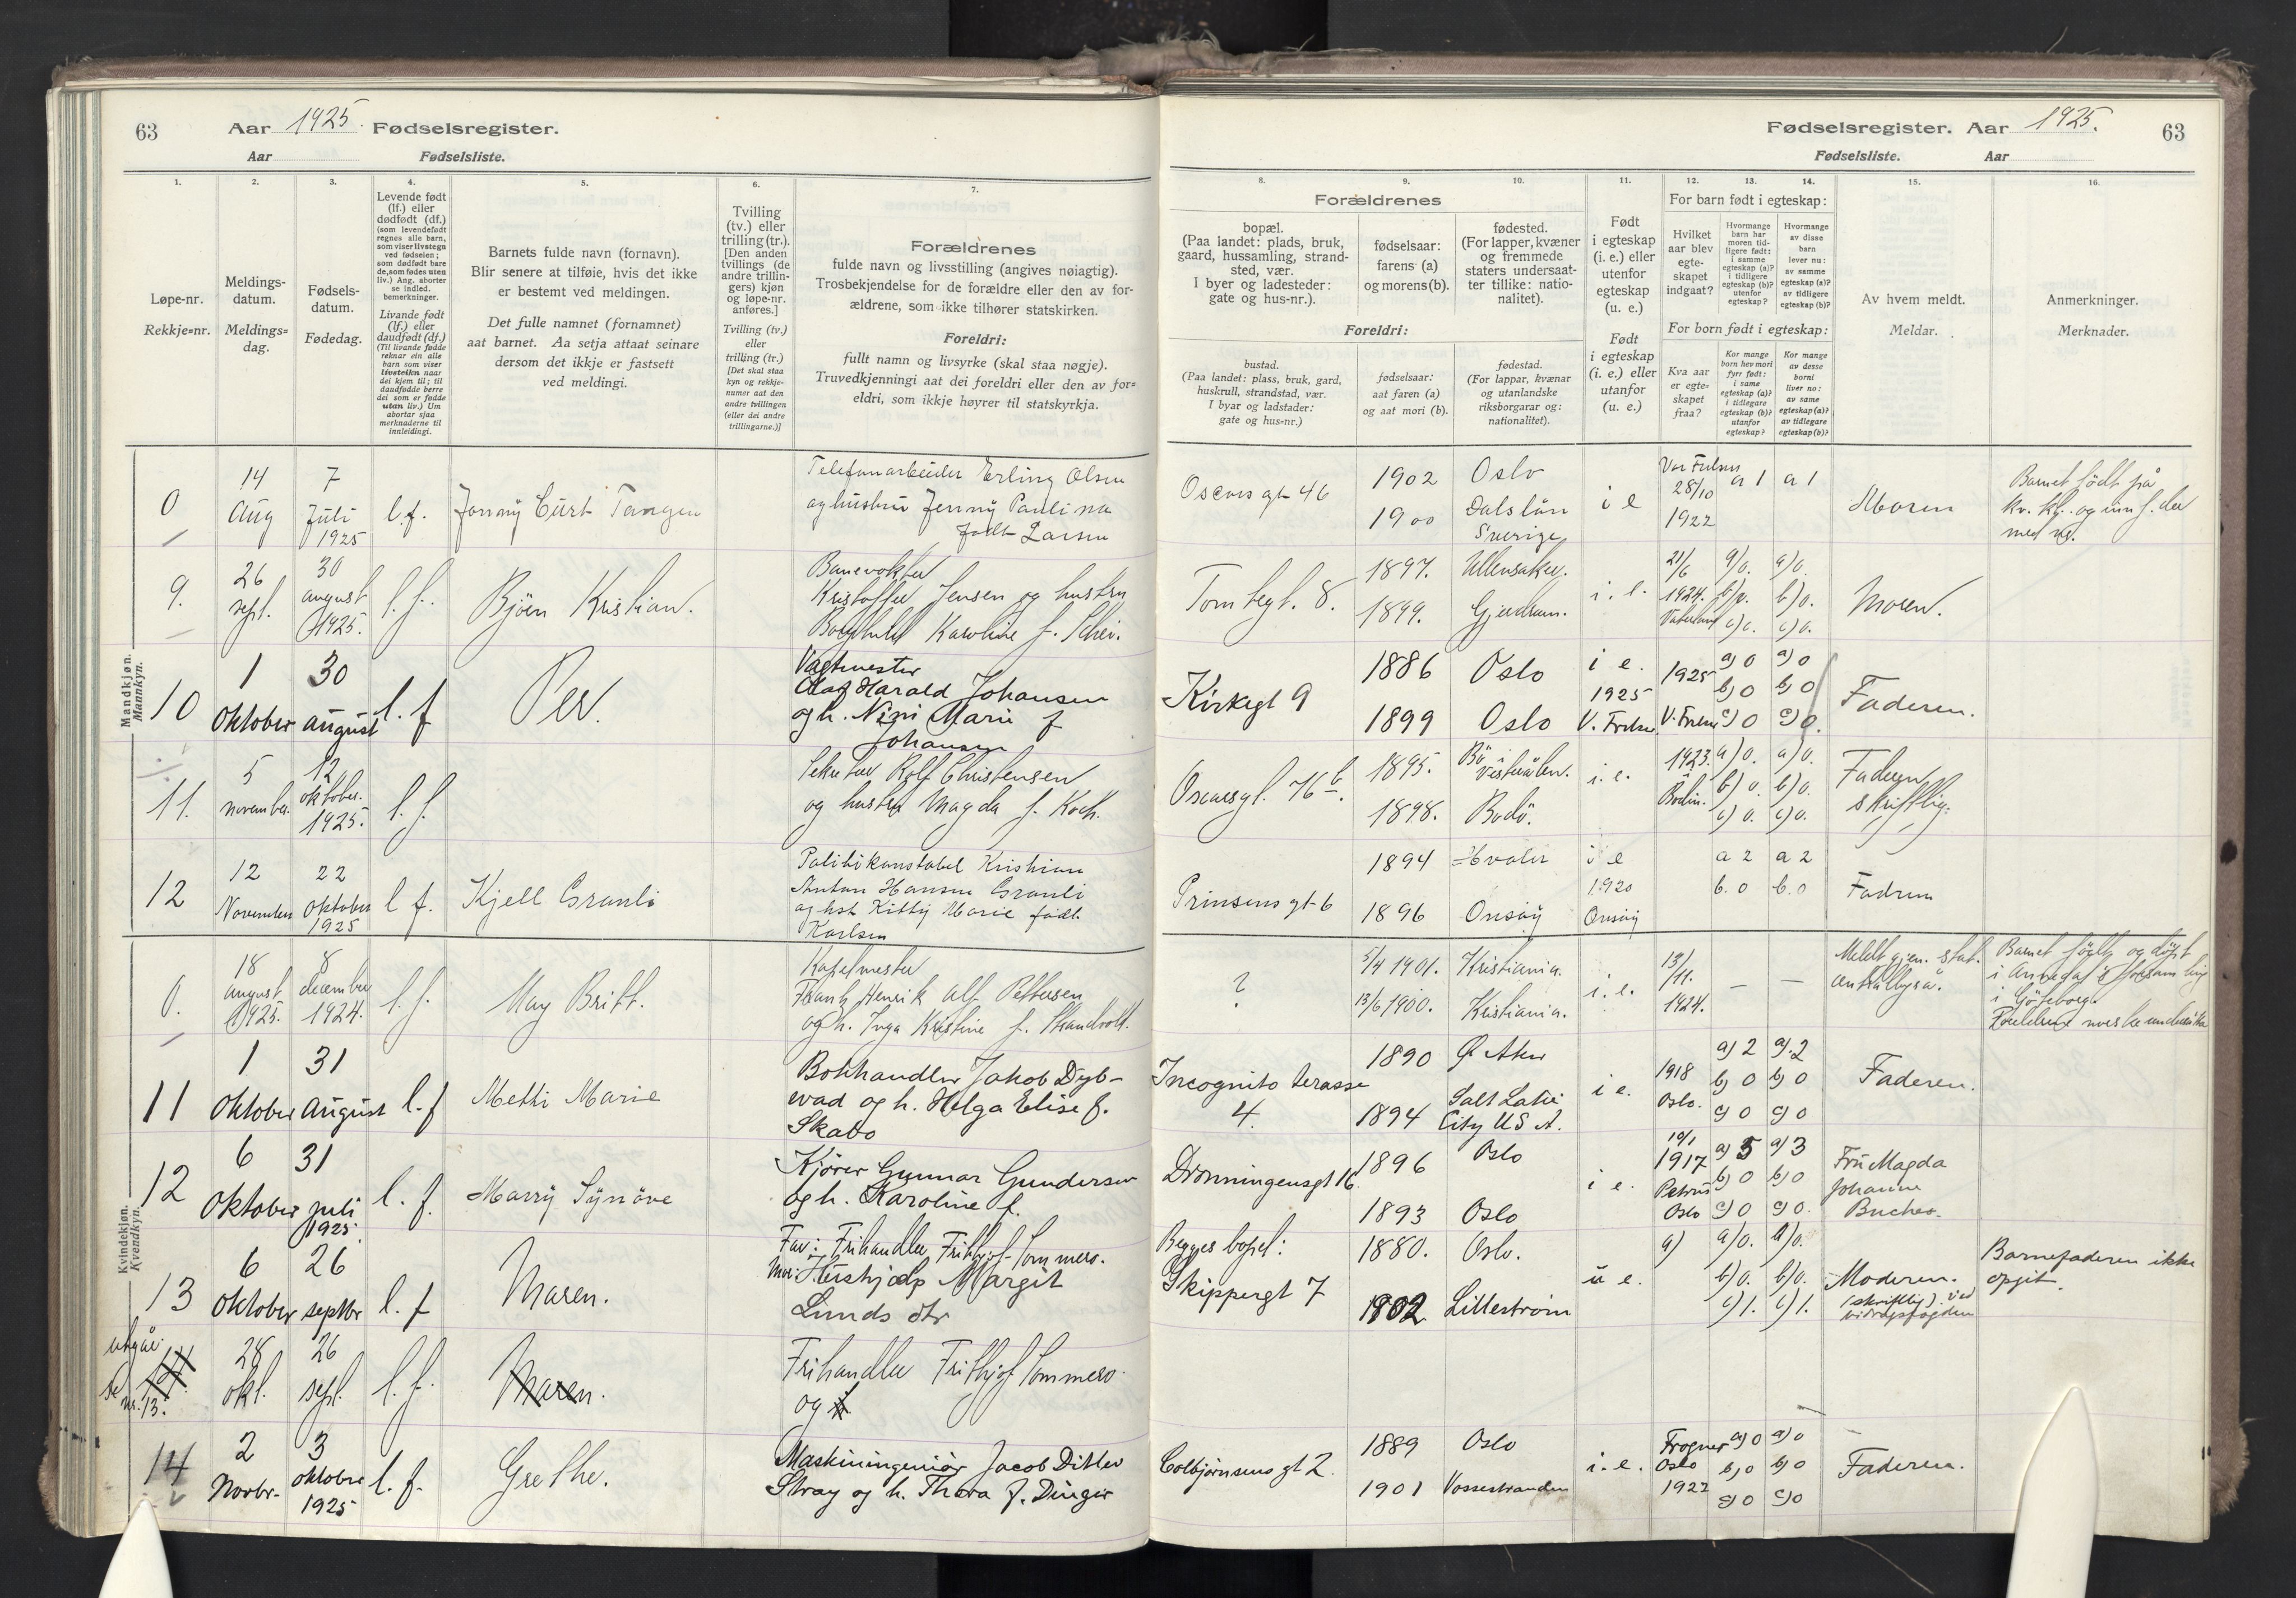 63 Aar 1925. Fødselsregister.
Aar Fødselsliste.
1. 2. 3. 4. 5. 6. 7.
Løpe-nr.
Rekkje-nr.
Meldings-
datum.
Meldings-
dag.
Fødsels-
datum.
Fødedag.
Levende født
(lf.) eller
dødfødt (df.)
(som levendefødt
regnes alle barn,
som viser livstegn
ved fødselen;
som dødfødt bare
de, som fødes uten
liv.) Ang. aborter
se indled.
bemerkninger.
Livande født
(lf.) eller
daudfødt (df.)
(Til livande fødde
reknar ein alle
barn som viser
livsteikn naar
dei kjem til; til
daudfødde berre
dei som er fødde
utan liv.) Um
abortar sjaa
merknaderne til
innleidingi.
Barnets fulde navn (fornavn).
Blir senere at tilføie, hvis det ikke
er bestemt ved meldingen.
Det fulle namnet (fornamnet)
aat barnet. Aa setja attaat seinare
dersom det ikkje er fastsett
ved meldingi.
Tvilling
(tv.) eller
trilling (tr.).
[Den anden
tvillings (de
andre trillin-
gers) kjøn
og løpe-nr.
anføres.]
Tvilling (tv.)
eller
trilling (tr.)
[Det skal staa
kyn og rekkje-
numer aat den
andre tvillingen
(eller dei andre
trillingarne.)]
Forældrenes
fulde navn og livsstilling (angives nøiagtig).
Trosbekjendelse for de forældre eller den av for-
ældrene, som ikke tilhører statskirken.
Foreldri:
fullt namn og livsyrke (skal staa nøgje).
Truvedkjenningi aat dei foreldri eller den av for-
eldri, som ikkje høyrer til statskyrkja.
Mandkjøn.
Mannkyn.
0
14
Aug
7
Juli
1925
l.f.
Jonny Curt Tangen
Telefonarbeider Erling Olsen
og hustru Jenny Paulina
født Larsen
9.
26
sept.
30
august
1925.
l.f.
Bjørn Kristian.
Banevokter
Kristoffer Jensen og hustru
Borghild Karoline f. Schei.
10
1
Oktober
30
august
l. f
Per.
Vagtmester
Olaf Harald Johansen
og h. Nini Marie f
Johansen
11.
5
november.
12
oktober.
1925.
l.f.
Sekretær Rolf Christensen
og hustru Magda f. Koch.
12
12
November
22
Oktober
1925
l f.
Kjell Granli
Politikonstabel Kristian
Anton Hansen Granli
og hst Kitty Marie født
Karlsen
Kvindekjøn.
Kvendkyn.
0.
18
august
1925.
8
december
1924.
l.f.
May Britt.
Kapelmester
Frank Henrik Alf Pettersen
og h. Inga Kristine f. Strandvold.
11
1
Oktober
31
August
l.f
Metti Marie
Bokhandler Jakob Dyb-
wad og h. Helga Elise f.
Skabo
12
6
Oktober
31
juli
1925.
l. f.
Marry Synöve
Kjører Gunnar Gundersen
og h. Karoline f.
13
6
Oktober
26
septbr
l. f
Maren.
Far: Frihandler Frithjof Sommero.
Mor: Hushjælp Margit
Lunds dtr
utgår
se
nr. 13.
14.
28
okt.
26
sept.
l. f.
Maren.
Frihandler Frithjof Sommero.
og
14
2
Novbr.
3
oktober
1925
l. f.
Grethe.
Maskiningeniør Jacob Ditlev
Stray og h. Thora f. Dinger
Fødselsregister. Aar 1925. 63
Fødselsliste. Aar
8. 9. 10. 11. 12. 13. 14. 15. 16.
Forældrenes
bopæl.
(Paa landet: plads, bruk,
gaard, hussamling, strand-
sted, vær.
I byer og ladesteder:
gate og hus-nr.).
fødselsaar:
farens (a)
og morens (b).
fødested.
(For lapper, kvæner
og fremmede
staters undersaat-
ter tillike: natio-
nalitet).
Foreldri:
bustad.
(Paa landet: plass, bruk, gard,
huskrull, strandstad, vær.
I byar og ladstader:
gate og hus-nr.)
fødselsaar:
aat faren (a)
og aat mori (b).
fødestad.
(For lappar, kvænar
og utanlandske
riksborgarar og:
nationalitet).
Født
i egteskap
(i. e.) eller
utenfor
egteskap
(u. e.)
Født
i egteskap
(i. e.) eller
utanfor
(u. e.)
For barn født i egteskap:
Hvilket
aar blev
egte-
skapet
indgaat?
Hvormange
barn har
moren tid-
ligere født:
i samme
egteskap (a)?
i tidligere
egteskap (b)?
utenfor
egteskap?
Hvormange
av disse
barn
lever nu:
av samme
egteskap (a)?
av tidligere
egteskap (b)?
For born født i egteskap:
Kva aar
er egte-
skapet
fraa?
Kor mange
born hev mori
fyrr født:
i same
egteskap (a)?
i tidlegare
egteskap (b)?
utanfor
egteskap?
Kor mange
av desse
borni
liver no:
av same
egteskap (a)?
av tidlegare
egteskap (b)?
Av hvem meldt.
Meldar.
Anmerkninger.
Merknader.
Oscars gt 46
1902
1900
Oslo
Dalslån
Sverige
i e
Vor Frelser
28/10
1922
a 1
a 1
Moren
Barnet født på
kv. kl. og
Tomtegt. 8.
1897.
1899.
Ullensaker.
Gjerdrum.
i. e.
21/6
1924.
Vaterland
a/o.
b/o.
c/o.
a/o.
b/o.
c/o.
Moren.
Kirkegt 9
1886
1899
Oslo
Oslo
i e.
1925
V. Frelser
1925
V. Frelser
a) 0
b) 0
c) 0
a) 0
b) 0
c) 0
Faderen.
Oscarsgt. 76 b.
1895.
1898.
Bö i
Vesterålen.
Bodö.
i. e.
1923.
Bodin.
a) 0.
b) 0.
c) 0.
a) 0.
b) 0.
c) 0.
Faderen
skriftlig.
Prinsens gt 6
1894
1896
Hvaler
Onsøy
i e
1920
Onsøy
a 2
b. 0
a 2
b. 0
Fadren
?
5/4 1901.
13/6 1900.
Kristiania.
Kristiania.
i. e.
13/11.
1924.
—
—
Meldt gjen. stat.
Barnet født og døpt
i Annedal's forsamling
i Göteborg.
Foreldrene norske undersåtter
Incognito terasse
4.
1890
1894
Ø. Aker
Salt Lake
City U S A.
i e.
1918
Oslo.
a) 2
b) 0
c) 0
a). 2
b) 0
c) 0
Faderen.
Dronningensgt 16
1896
1893
Oslo
Oslo
i e.
10/1
1917
Petrus
Oslo
a) 5
b) 0
c) 0
a) 3
b) 0
c) 0.
Fru Magda
Johanne
Bucher.
Begges bopel:
Skippergt 7
1880.
1902
Oslo.
Lillestrøm
u e.
a)
a) 0.
b) 0.
c) 1.
a) 0.
b) 0.
c) 1.
Moderen.
(skriftlig). ved
bidragsfogden
Barnefaderen ikke
opgit.
Colbjørnsens gt 2.
1889
1901
Oslo
Vossestranden
i. e.
Frogner
Oslo
1922
a) 0
b) 0
c) 0
a) 0
b) 0
c) 0
Faderen.